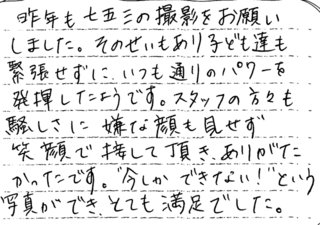 昨年も七五三の撮影をお願い
しました。そのせいもあり子ども達も
緊張せずに、いつも通りのパワーを
発揮したようです。スタッフの方々も
騒しさに嫌な顔も見せず
笑顔で接して頂き、ありがた
かったです。"今しかできない!"という
写真ができ、とても満足でした。